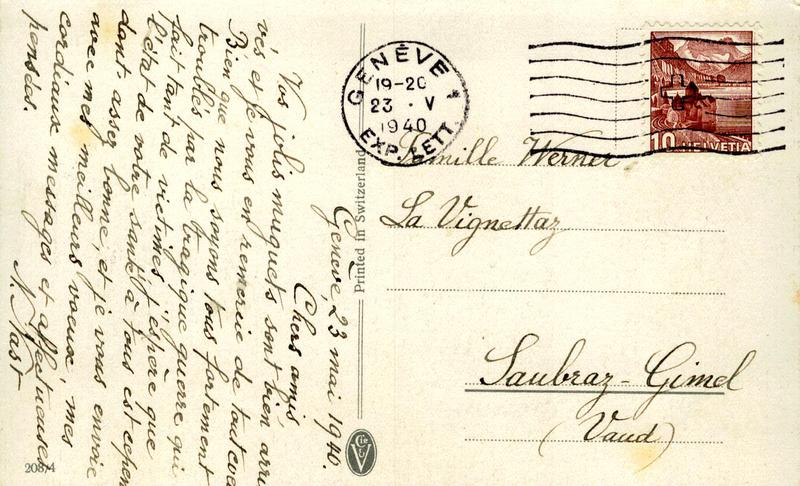 Genève, 23 mai 1940.
Chers amis
Vos jolis muguets sont bien arri
vés et je vous en remercie de tout cœur
Bien que nous soyons tous fortement
troublés par la tragique guerre qui
fait tant de victimes j'espère que
l'état de notre santé à tous est cepen
dant assez bonne, et je vous envoie
avec mes meilleurs voeux, mes
cordiaux messages et affectueuses
pensées.
N. Jast
Printed in Switzerland
Cie
V
208/4
GENÈVE 1
19-20
23 · V
1940
EXP. LETT.
10 HELVETIA
Famille Werner
La Vignettaz
Saubraz-Gimel
(Vaud)